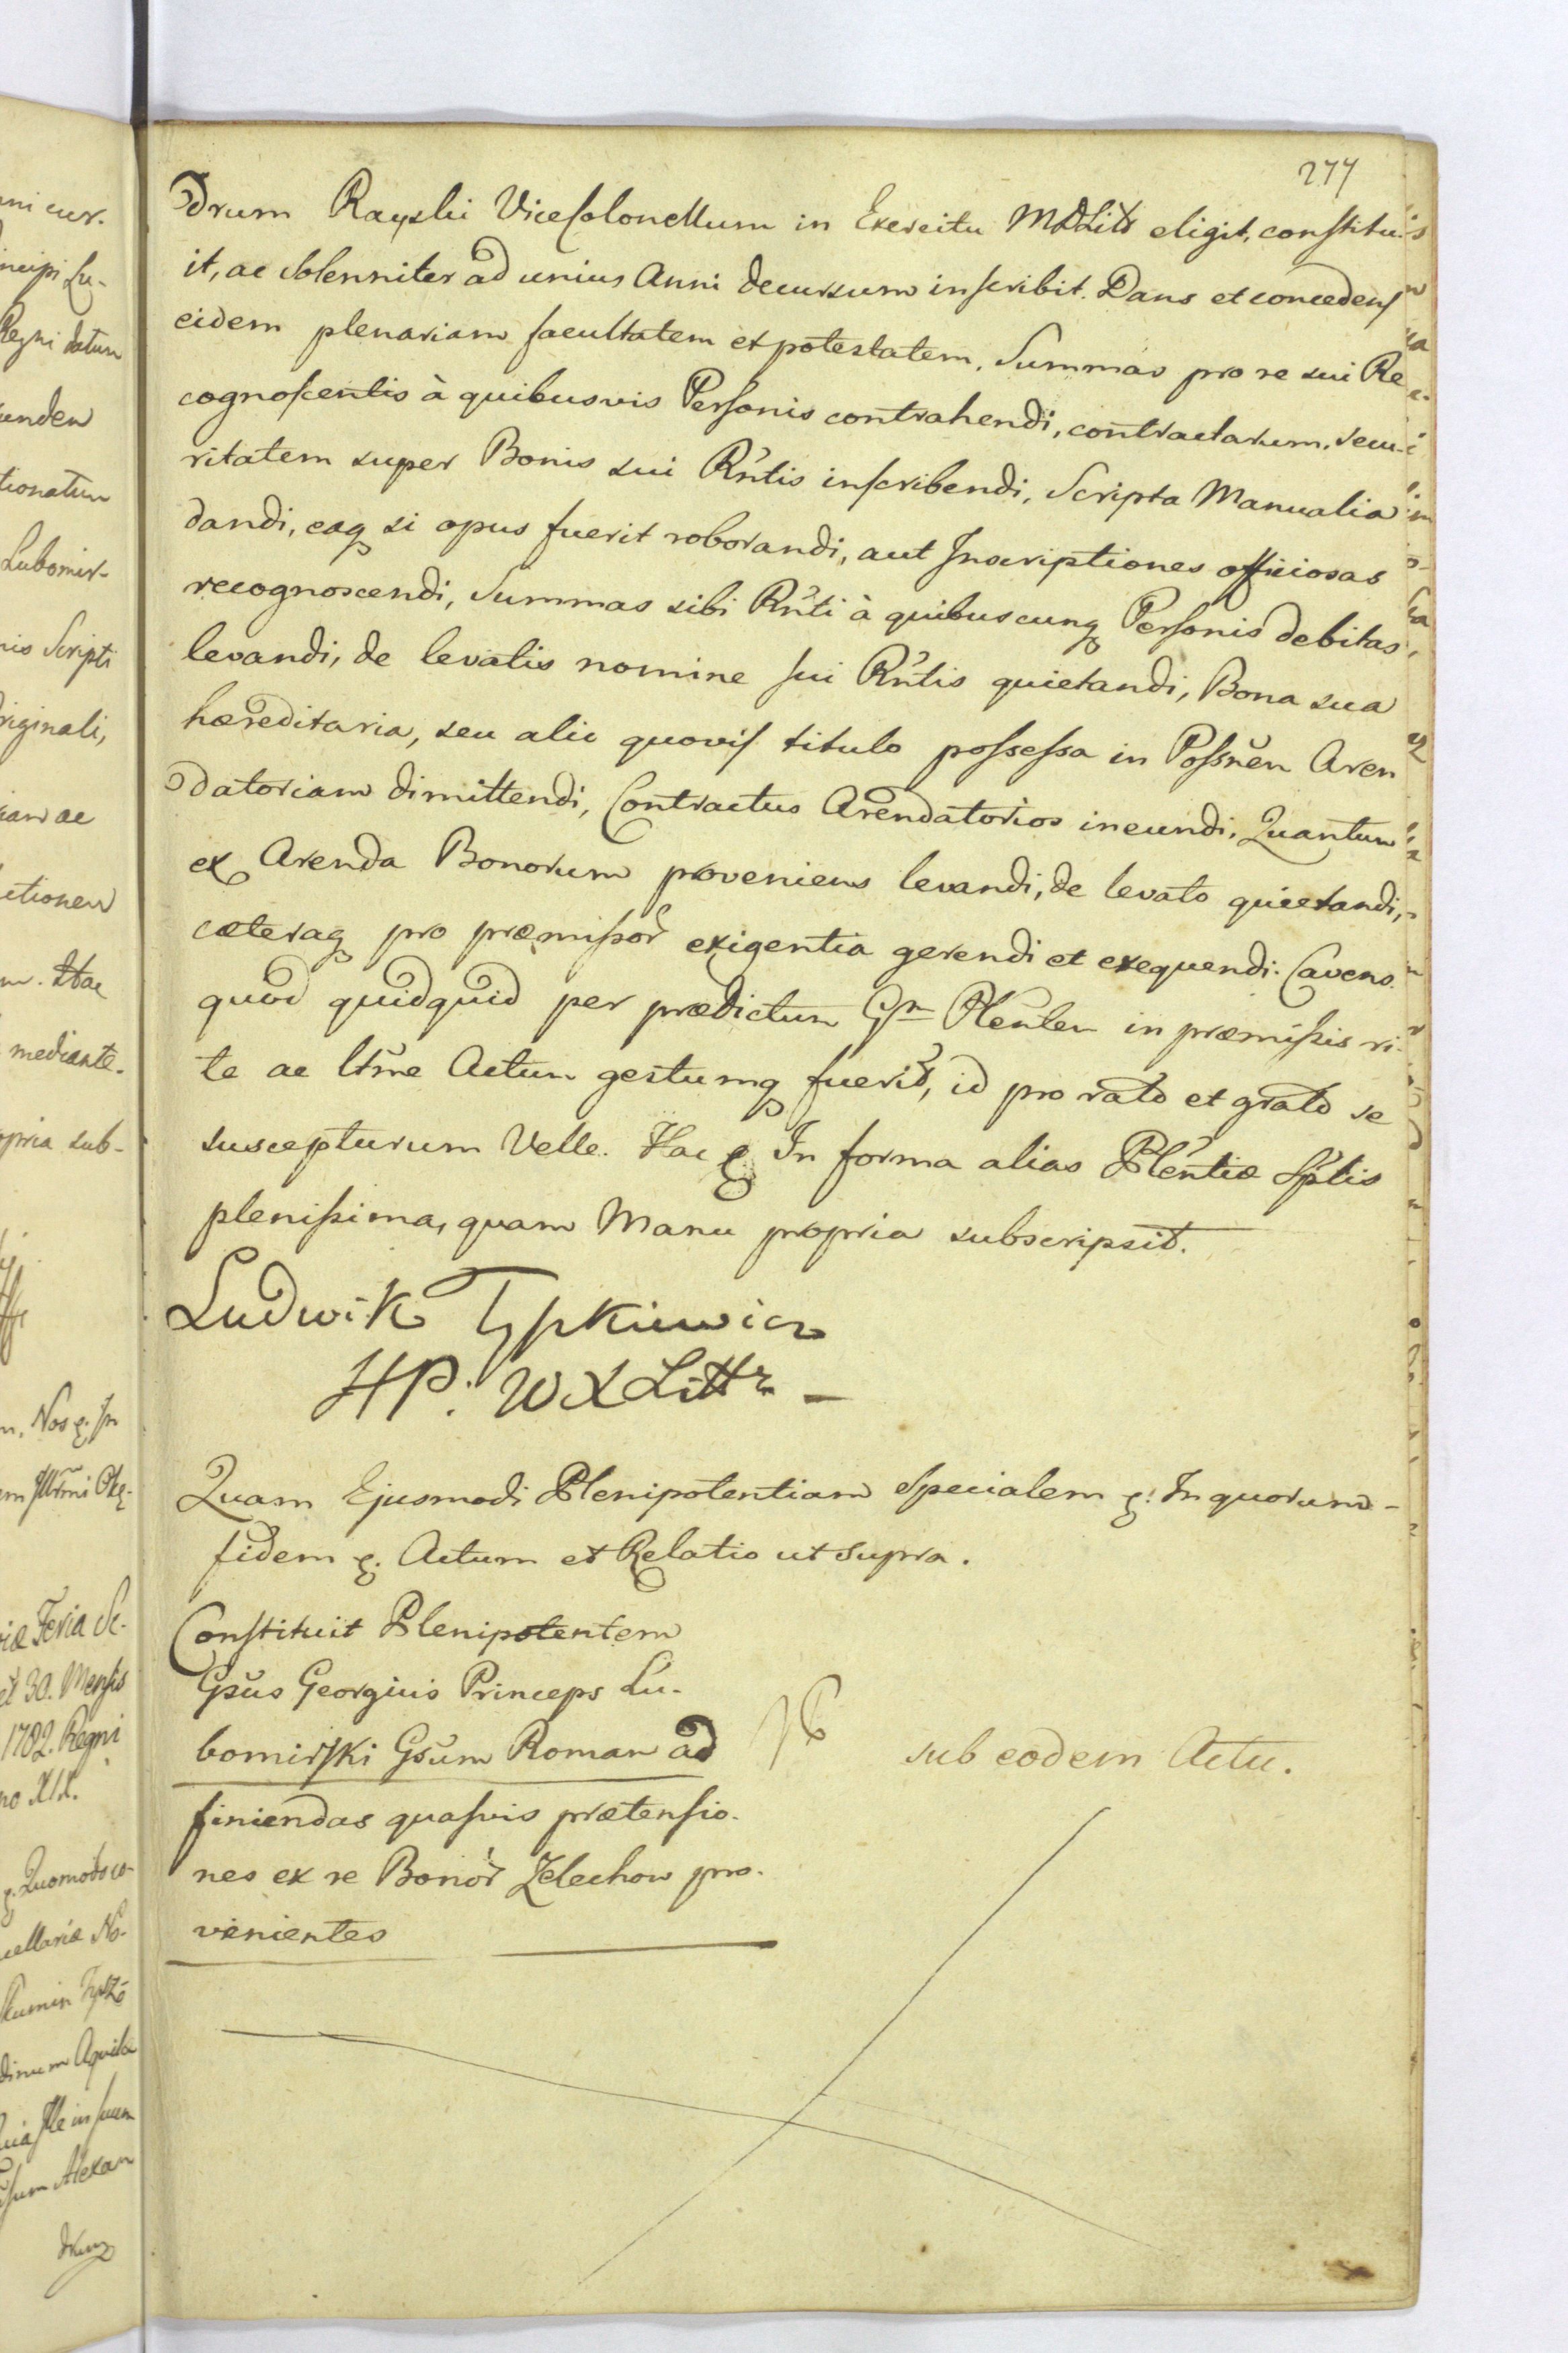 277
drum Rayski ViceColonellum in Exercitu MDLitt eligit, constitu-
it, ac Solenniter ad unius Anni decursum inscribit. Dans et concedens
eidem plenariam facultatem et potestatem, Summas pro re sui Re
cognoscentis à quibusvis Personis contrahendi, contractarum, secu-
ritatem super Bonis sui Rn̄tis inscribendi, Scripta Manualia
dandi, eaq si opus fuerit roborandi, aut Inscriptiones officiosas
recognoscendi, Summas sibi Rn̄ti à quibuscunq Personis debitas,
levandi, de levatis nomine sui Rn̄tis quietandi, Bona sua
hæreditaria, seu alio quovis titulo possessa in Possn̄en Aren
datoriam dimittendi, Contractus Arendatorios ineundi, Quantum
ex Arenda Bonorum proveniens levandi, de levato quietandi,
cæteraq pro præmissor exigentia gerendi et exequendi. Cavens
quod quidquid per prædictum Gn Plen̄tem in præmissis ri-
te ac ltm̄e Actum gestumq fuerit, id pro rato et grato se
suscepturum Velle. Hac e In forma alias Plen̄tiæ Splis
plenissima, quam Manu propria subscripsit.
Ludwik Tyszkiewicz
HP: WXLitt
Quam Ejusmodi Plenipotentiam Specialem e: In quorum-
fidem e. Actum et Relatio ut supra.
Constituit Plenipotentem
Gsus Georgius Princeps Lu-
bomirski Gsum Roman ad
finiendas quasvis prætensio-
nes ex re Bonor Zelechow pro-
venientes
sub eodem Actu.